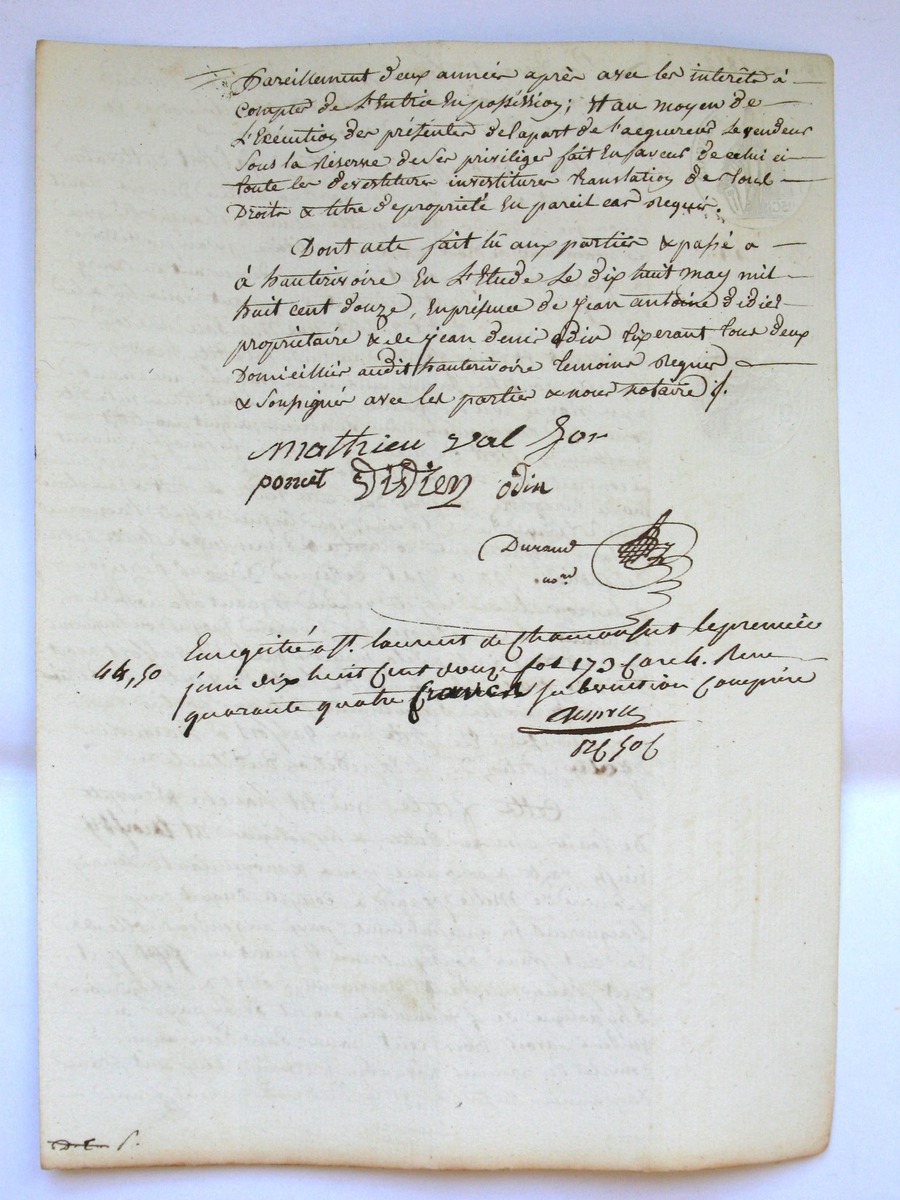 Pareillement deux années après avec les intérêts à
compter de l'Entrée En possession; Et au moyen de
l'Exécution des présentes de la part de l'acquereur le vendeur
sous la Réserve de ses priviliges fait En faveur de celui ci
toutes les devestitures investitures translation de tous
Droits & titre de propriété En pareil cas Requis.
Dont acte fait lû aux parties & passé a
à hauterivoire En l'Etude le dix huit may mil
huit cent douze, En présence de jean antoine didier
propriétaire & de jean denis odin tixerant tous deux
Domiciliés audit hauterivoire temoins Requis
& soussignés avec les parties & nous notaire /.
mathieu val
poncet Didier odin
Durand
no.re
Enregistré a St. laurent de Chamousset le premier
44,50
juin dix huit Cent douze fol 173 Reçu
quarante quatre francs subvention Comprise